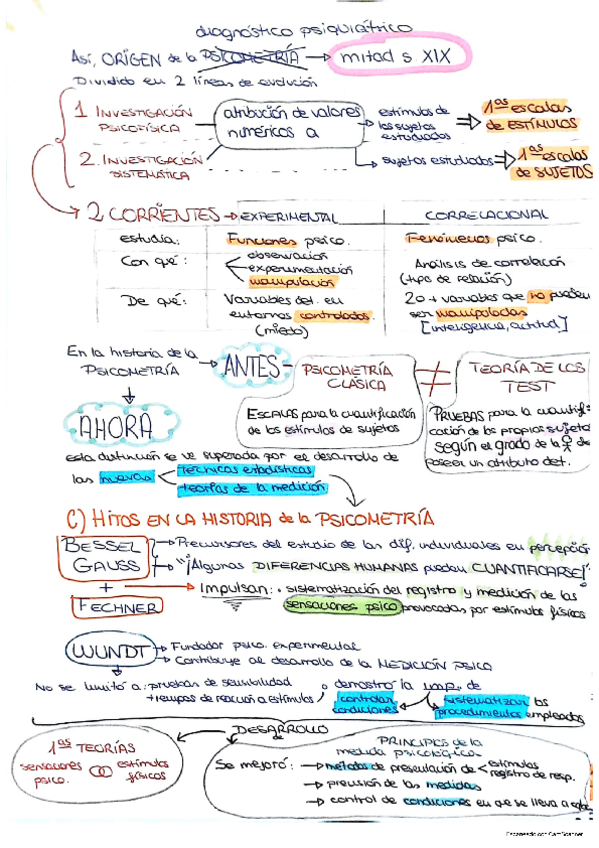 diagnóstico psiquiátrico
Así, ORIGEN de la PSICOMETRÍA → mitad s. XIX
Dividido en 2 líneas de evolución
1 INVESTIGACIÓN PSICOFÍSICA
atribución de valores numéricos a
estímulos de los sujetos estudiados ⇒ 1ªs escalas de ESTÍMULOS
2. INVESTIGACIÓN SISTEMÁTICA
sujetos estudiados ⇒ 1ªs escalas de SUJETOS
2 CORRIENTES → EXPERIMENTAL CORRELACIONAL
estudia: Funciones psico. Fenómenos psico.
Con qué: observación
experimentación
manipulación
Análisis de correlación
(tipo de relación)
De qué: Variables det. en
entornos controlados.
(miedo)
2 o + variables que no pueden
ser manipuladas
[inteligencia, actitud]
En la historia de la
PSICOMETRÍA → ANTES - PSICOMETRÍA CLÁSICA ≠ TEORÍA DE LOS TEST
ESCALAS para la cuantificación
de los estímulos de sujetos
PRUEBAS para la cuantifi-
cación de los propios sujetos
según el grado de la de
poseer un atributo det.
AHORA
esta distinción se ve superada por el desarrollo de
las nuevas técnicas estadísticas
teorías de la medición
C) HITOS EN LA HISTORIA de la PSICOMETRÍA
BESSEL → Precursores del estudio de las dif. individuales en percepción
GAUSS → "¡Algunas DIFERENCIAS HUMANAS pueden CUANTIFICARSE!"
+ → Impulsan: • sistematización del registro y medición de las
FECHNER sensaciones psico provocadas por estímulos físicos
WUNDT → Fundador psico. experimental
→ Contribuye al desarrollo de la MEDICIÓN PSICO
No se limitó a: pruebas de sensibilidad
tiempos de reacción a estímulos
demostró la imp. de
controlar condiciones
sistematizar los
procedimientos empleados
DESARROLLO de
1ªs TEORÍAS
sensaciones psico. estímulos físicos
PRINCIPIOS de la
medida psicológica
Se mejoró: → métodos de presentación de estímulos
registro de resp.
→ precisión de las medidas
→ control de condiciones en que se lleva a cabo
Escaneado con CamScanner